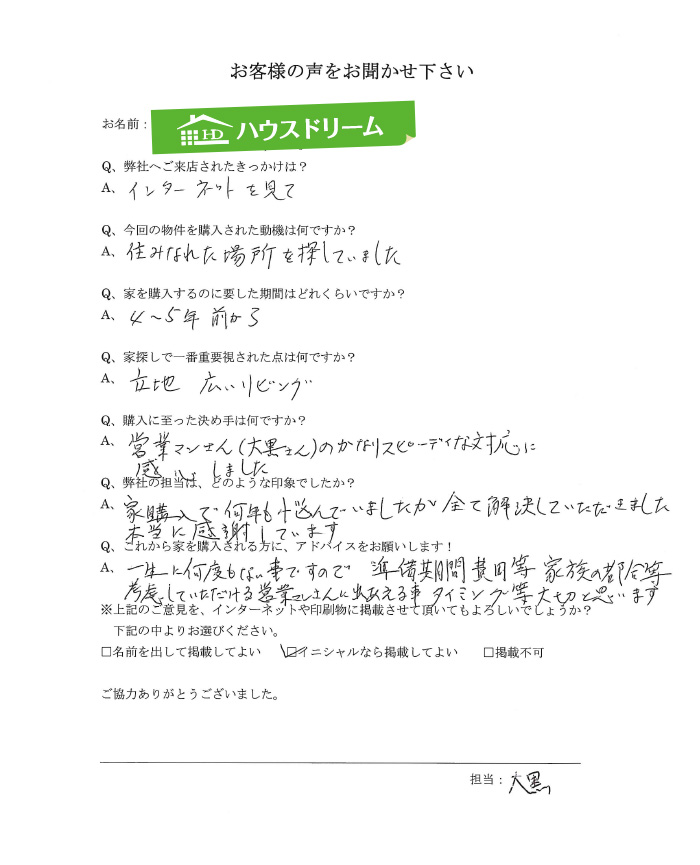 お客様の声をお聞かせ下さい
お名前： HD ハウスドリーム
Q、弊社へご来店されたきっかけは？
A、インターネットを見て
Q、今回の物件を購入された動機は何ですか？
A、住みなれた場所を探していました
Q、家を購入するのに要した期間はどれくらいですか？
A、4～5年前から
Q、家探しで一番重要視された点は何ですか？
A、立地 広いリビング
Q、購入に至った決め手は何ですか？
A、営業マンさん(大黒さん)のかなりスピーディな対応に
感心しました
Q、弊社の担当は、どのような印象でしたか？
A、家購入で何年も悩んでいましたが全て解決していただきました
本当に感謝しています
Q、これから家を購入される方に、アドバイスをお願いします！
A、一生に何度もない事ですので 準備期間費用等 家族の都合等
考慮していただける営業マンさんに出会える事 タイミング等大切と思います
※上記のご意見を、インターネットや印刷物に掲載させて頂いてもよろしいでしょうか？
下記の中よりお選びください。
□名前を出して掲載してよい ☑イニシャルなら掲載してよい □掲載不可
ご協力ありがとうございました。
担当：大黒